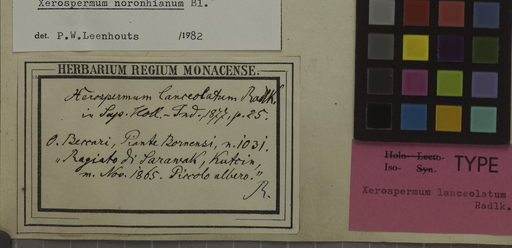 Xerospermum noronhianum Bl.
det. P.W.Leenhouts /1982
HERBARIUM REGIUM MONACENSE.
Xerospermum lanceolatum Radlk.
in Sap. Holl.-Ind., 1877, p. 25.
O. Beccari, Piante Bornensi, n. 1031.
"Ragiato di Sarawak, Kutcin,
m. Nov. 1865. Piccolo albero."
R.
Holo- Lecto- TYPE
Iso- Syn.
Xerospermum lanceolatum
Radlk.